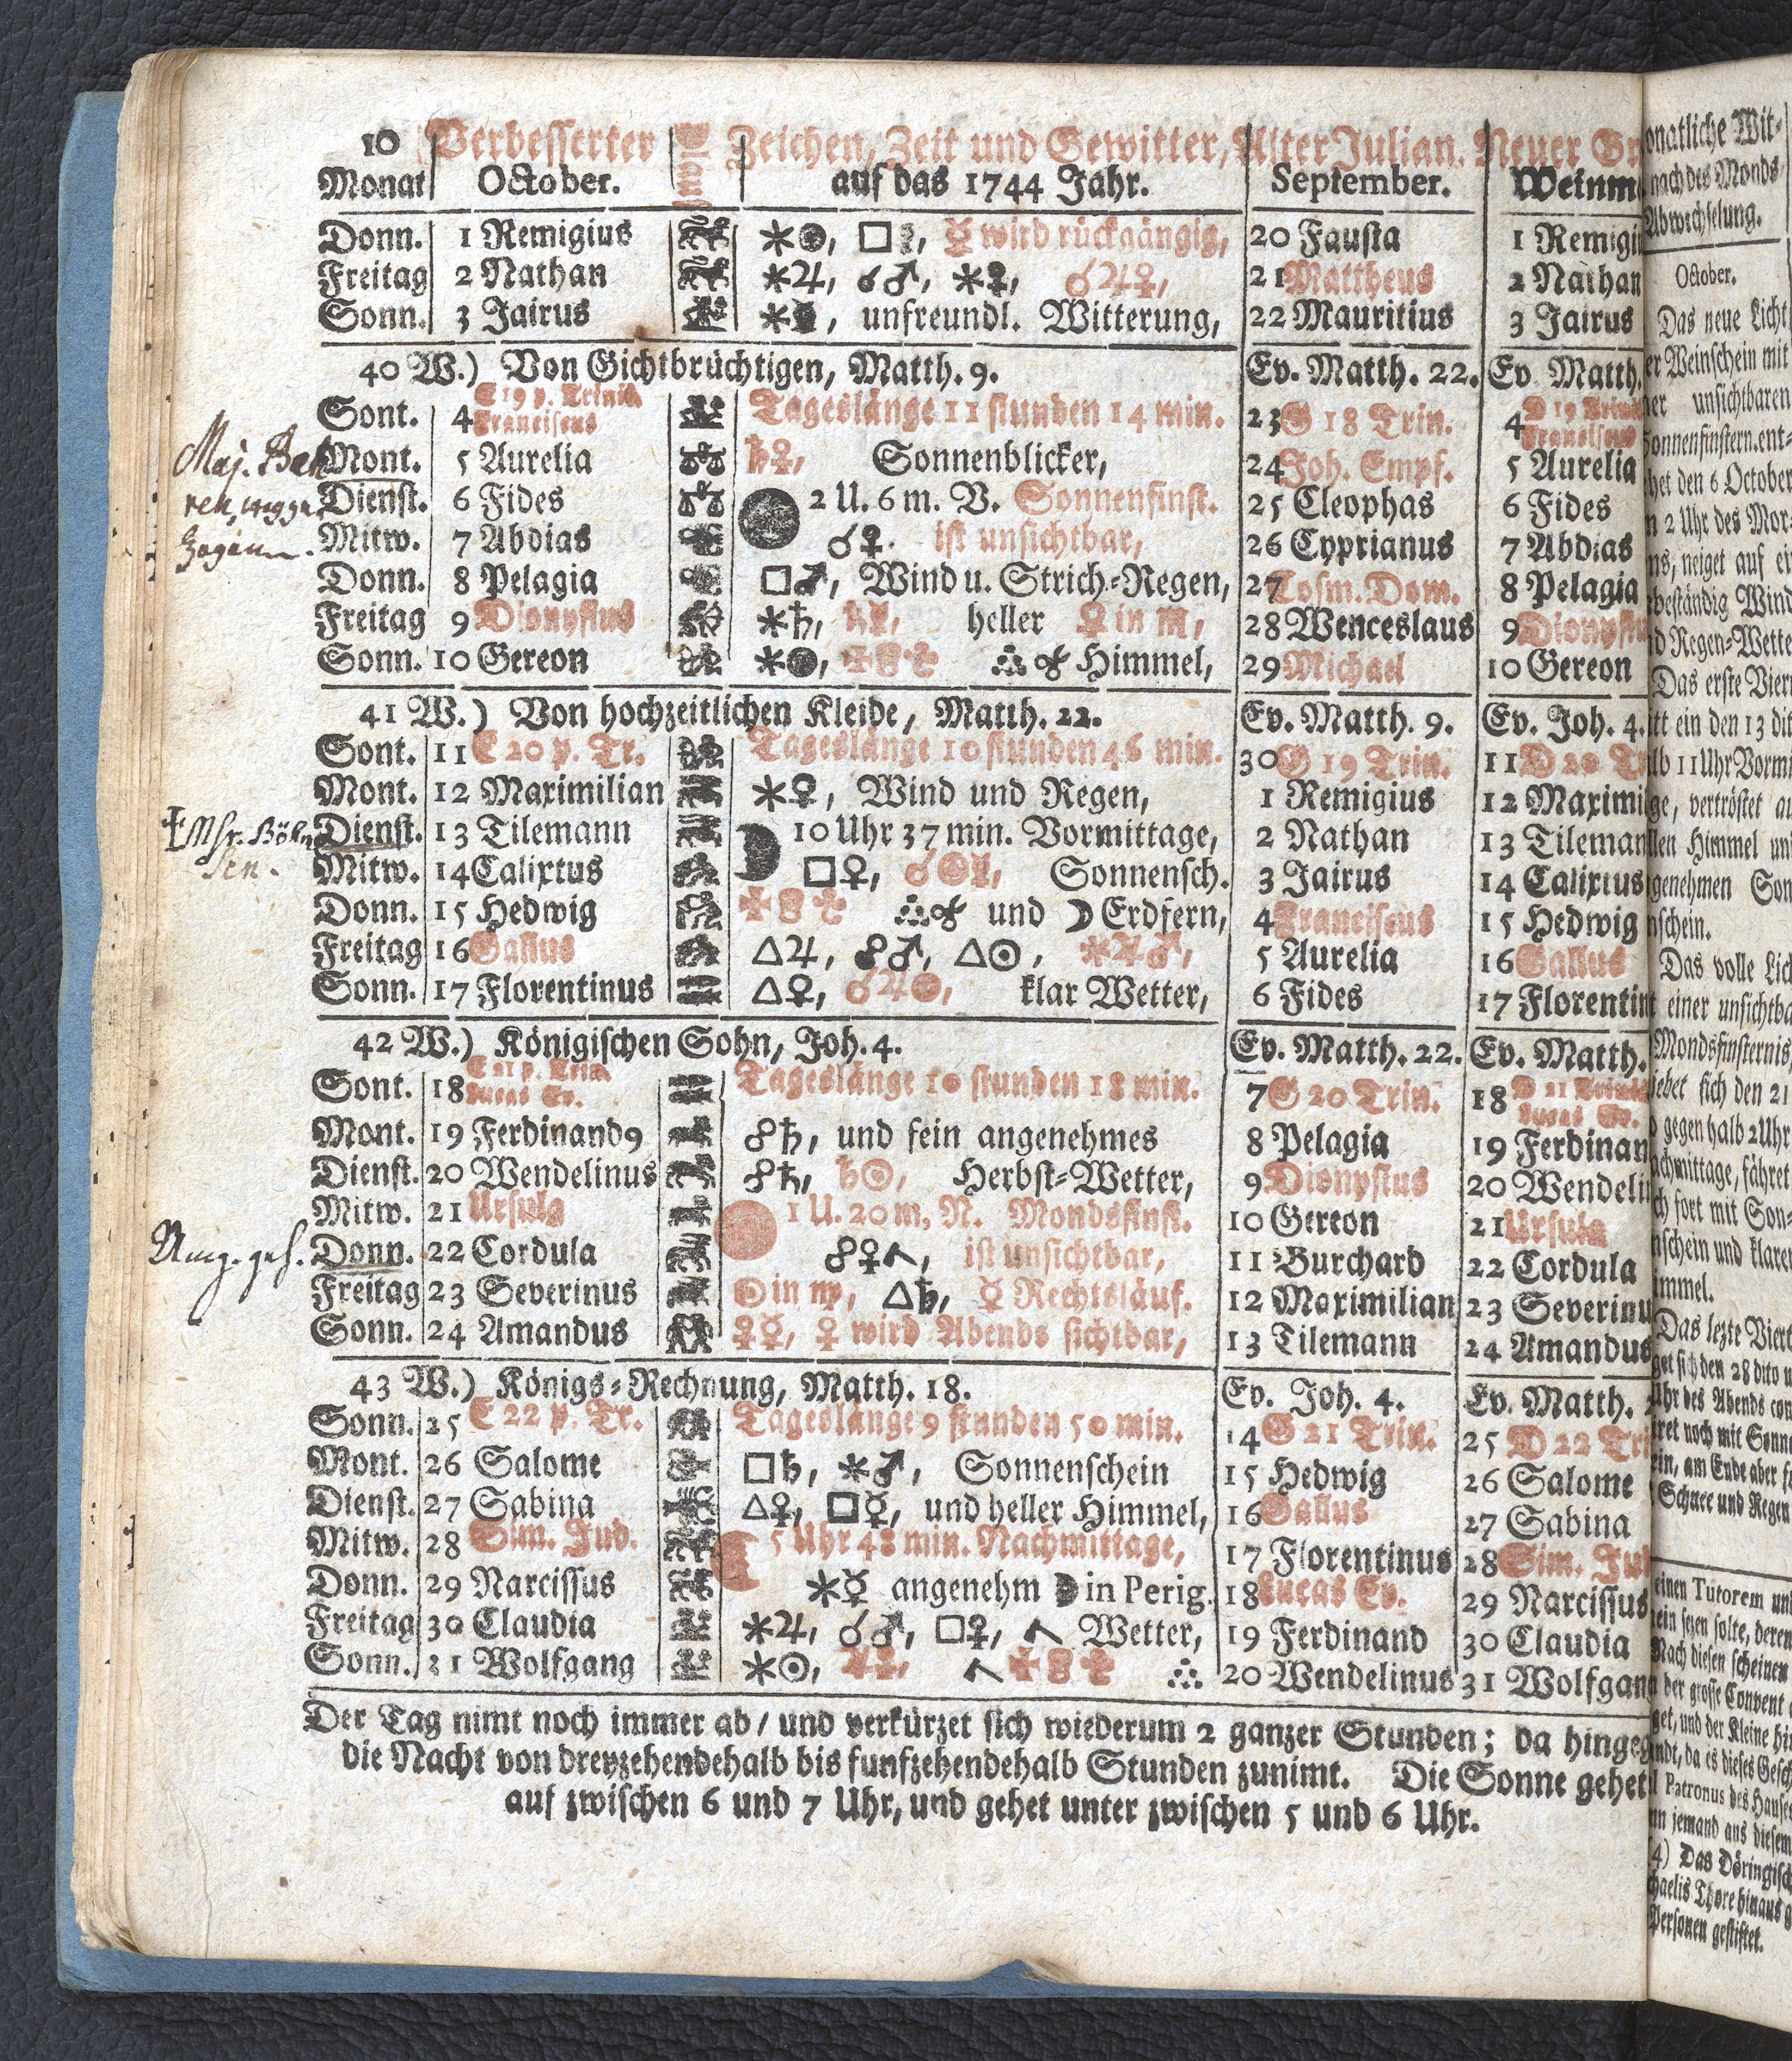 10 Verbesserter Zeichen, Zeit und Gewitter, Alter Julian. Neuer Gr
Monat October. auf das 1744 Jahr. September. Weinm
Donn. 1 Remigius ⚹☽, □♄, ☿ wird rückgängig, 20 Fausta 1 Remigi
Freitag 2 Nathan ⚹♃, ☌♂, ⚹♀, ☌♃♀, 21 Mattheus 2 Nathan
Sonn. 3 Jairus ⚹☿, unfreundl. Witterung, 22 Mauritius 3 Jairus
40 W.) Von Gichtbrüchtigen, Matth. 9. Ev. Matth. 22. Ev Matth.
Sont. 4 E 19 p. Trinit. Franciscus Tageslänge 11 stunden 14 min. 23 G 18 Trin. 4 D 19 Trinit Franciscus
Maj. Mont. 5 Aurelia ♄♀, Sonnenblicker, 24 Joh. Empf. 5 Aurelia
Dienst. 6 Fides 2 U. 6 m. V. Sonnenfinst. 25 Cleophas 6 Fides
Mitw. 7 Abdias ☌♀. ist unsichtbar, 26 Cyprianus 7 Abdias
Donn. 8 Pelagia □♂, Wind u. Strich-Regen, 27 Cosm. Dom. 8 Pelagia
Freitag 9 Dionysius ⚹♄, heller ♀ in ♏, 28 Wenceslaus 9 Dionysi
Sonn. 10 Gereon Himmel, 29 Michael 10 Gereon
41 W.) Von hochzeitlichen Kleide, Matth. 22. Ev. Matth. 9. Ev. Joh. 4.
Sont. 11 E 20 p. Tr. Tageslänge 10 stunden 46 min. 30 G 19 Trin. 11 D 20 T
Mont. 12 Maximilian ⚹♀, Wind und Regen, 1 Remigius 12 Maximi
Dienst. 13 Tilemann 10 Uhr 37 min. Vormittage, 2 Nathan 13 Tileman
Mitw. 14 Calixtus □♀, Sonnensch. 3 Jairus 14 Calixtus
Donn. 15 Hedwig und ☽ Erdfern, 4 Franciscus 15 Hedwig
Freitag 16 Gallus △♃, ☍♂, △☉, ⚹♃♂, 5 Aurelia 16 Gallus
Sonn. 17 Florentinus △♀, ☌♃☉, klar Wetter, 6 Fides 17 Florentin
42 W.) Königischen Sohn, Joh. 4. Ev. Matth. 22. Ev. Matth.
Sont. 18 E 21 p. Trin. Lucas Ev. Tageslänge 10 stunden 18 min. 7 G 20 Trin. 18 D 21 Trinit Lucas Ev.
Mont. 19 Ferdinand9 ☍♄, und fein angenehmes 8 Pelagia 19 Ferdinan
Dienst. 20 Wendelinus ☍♄, ♄☉, Herbst-Wetter, 9 Dionysius 20 Wendeli
Mitw. 21 Ursula 1 U. 20 m. N. Mondsfinst. 10 Gereon 21 Ursula
Donn. 22 Cordula ☍♀, ist unsichtbar, 11 Burchard 22 Cordula
Freitag 23 Severinus ☉ in ♏, △♄, ☿ Rechtsläuf. 12 Maximilian 23 Severinu
Sonn. 24 Amandus ♀☿, ♀ wird Abends sichtbar, 13 Tilemann 24 Amandus
43 W.) Königs-Rechnung, Matth. 18. Ev. Joh. 4. Ev. Matth.
Sonn. 25 E 22 p. Tr. Tageslänge 9 stunden 50 min. 14 G 21 Trin. 25 D 22 Tri
Mont. 26 Salome □♄, ⚹♂, Sonnenschein 15 Hedwig 26 Salome
Dienst. 27 Sabina △♀, □☿, und heller Himmel, 16 Gallus 27 Sabina
Mitw. 28 Sim. Jud. 5 Uhr 48 min. Nachmittage, 17 Florentinus 28 Sim. Jud
Donn. 29 Narcissus ⚹☿ angenehm ☽ in Perig. 18 Lucas Ev. 29 Narcissus
Freitag 30 Claudia ⚹♃, ☌♂, □♀, Wetter, 19 Ferdinand 30 Claudia
Sonn. 31 Wolfgang ⚹☉, 20 Wendelinus 31 Wolfgang
Der Tag nimt noch immer ab/ und verkürzet sich wiederum 2 ganzer Stunden; da hingeg
die Nacht von dreyzehendehalb bis funfzehendehalb Stunden zunimt. Die Sonne gehet
auf zwischen 6 und 7 Uhr, und gehet unter zwischen 5 und 6 Uhr.
onatliche Wit-
nach des Monds
Abwechselung.
October.
Das neue Licht
er Weinschein mit
ner unsichtbaren
Sonnenfinstern. ent-
het den 6 October
n 2 Uhr des Mor-
ns, neiget auf er
beständig Wind
nd Regen-Wette
Das erste Vier
itt ein den 13 dit
lb 11 Uhr Vormi
ge, vertröstet au
llen Himmel un
genehmen Son
nschein.
Das volle Lich
t einer unsichtba
Mondsfinsternis
iebet sich den 21
o gegen halb 2 Uhr
achmittage, fähret
ch fort mit Son-
nschein und klaren
immel.
Das lezte Viert
get sich den 28 dito u
Uhr des Abends con
iret noch mit Sonne
ein, am Ende aber f
Schnee und Regen
einen Tutorem un
ein sezen solte, deren
Nach diesen scheinen
der grosse Convent
get, und der Kleine hin
ndt, da es dieses Gesch
l Patronus des Hauses
nn jemand aus diesem
4) Das Döringisch
chaelis Thore hinaus g
Personen gestiftet.